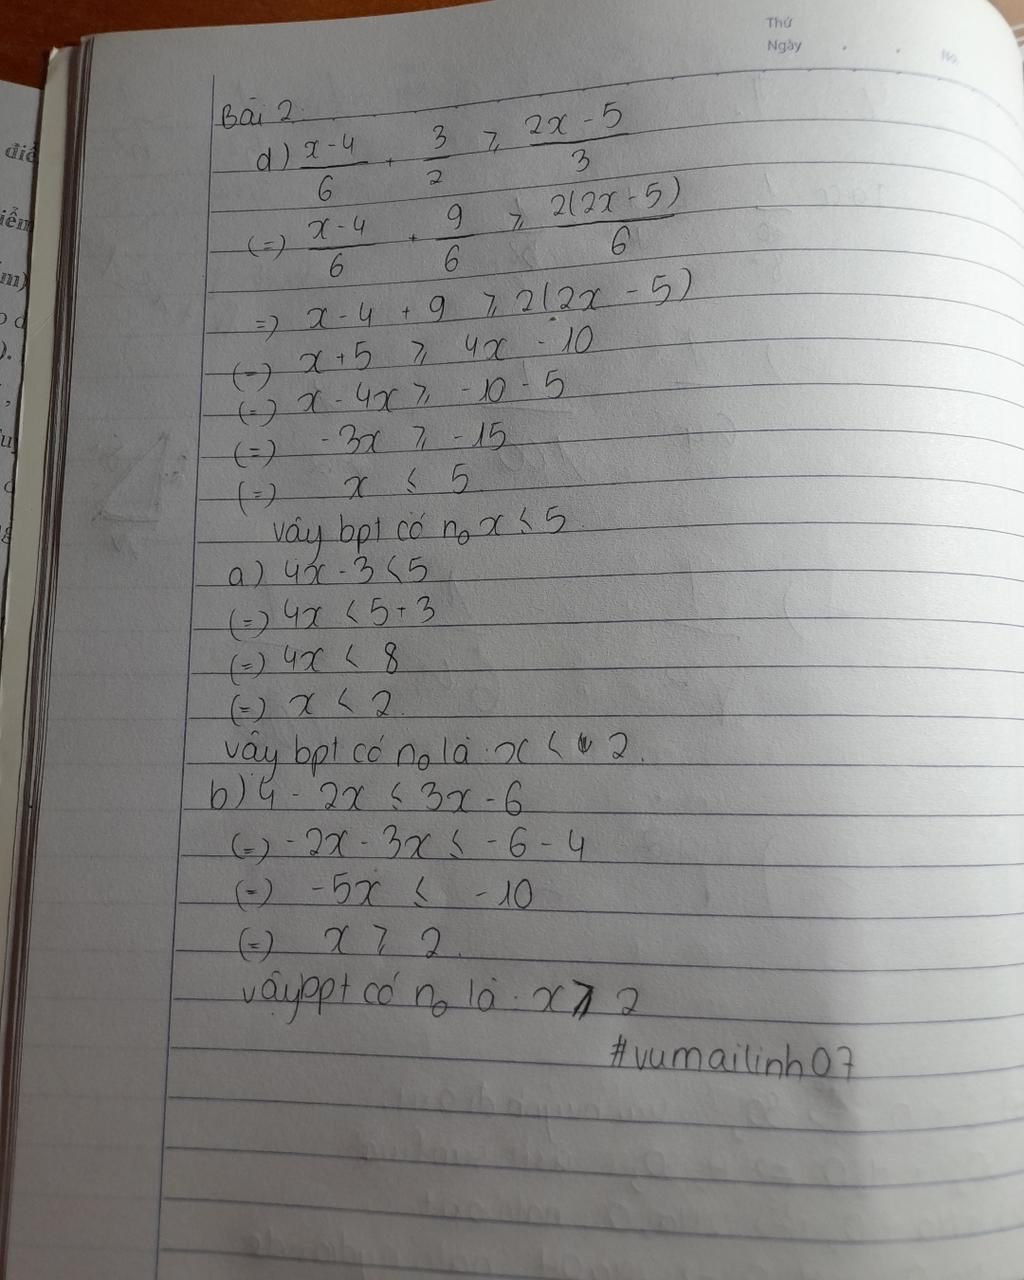 Thứ
Ngày . . No.
Bài 2.
d) x-4/6 + 3/2 ⩾ 2x-5/3
(=) x-4/6 + 9/6 ⩾ 2(2x-5)/6
=) x-4 + 9 ⩾ 2(2x-5)
(=) x+5 ⩾ 4x - 10
(=) x - 4x ⩾ -10 - 5
(=) -3x ⩾ -15
(=) x ⩽ 5
vậy bpt có n₀ x ⩽ 5.
a) 4x - 3 < 5
(=) 4x < 5+3
(=) 4x < 8
(=) x < 2.
vậy bpt có n₀ là x < 2.
b) 4 - 2x ⩽ 3x - 6
(=) -2x - 3x ⩽ -6 - 4
(=) -5x ⩽ -10
(=) x ⩾ 2.
vậy bpt có n₀ là x ⩾ 2
#vumailinh07